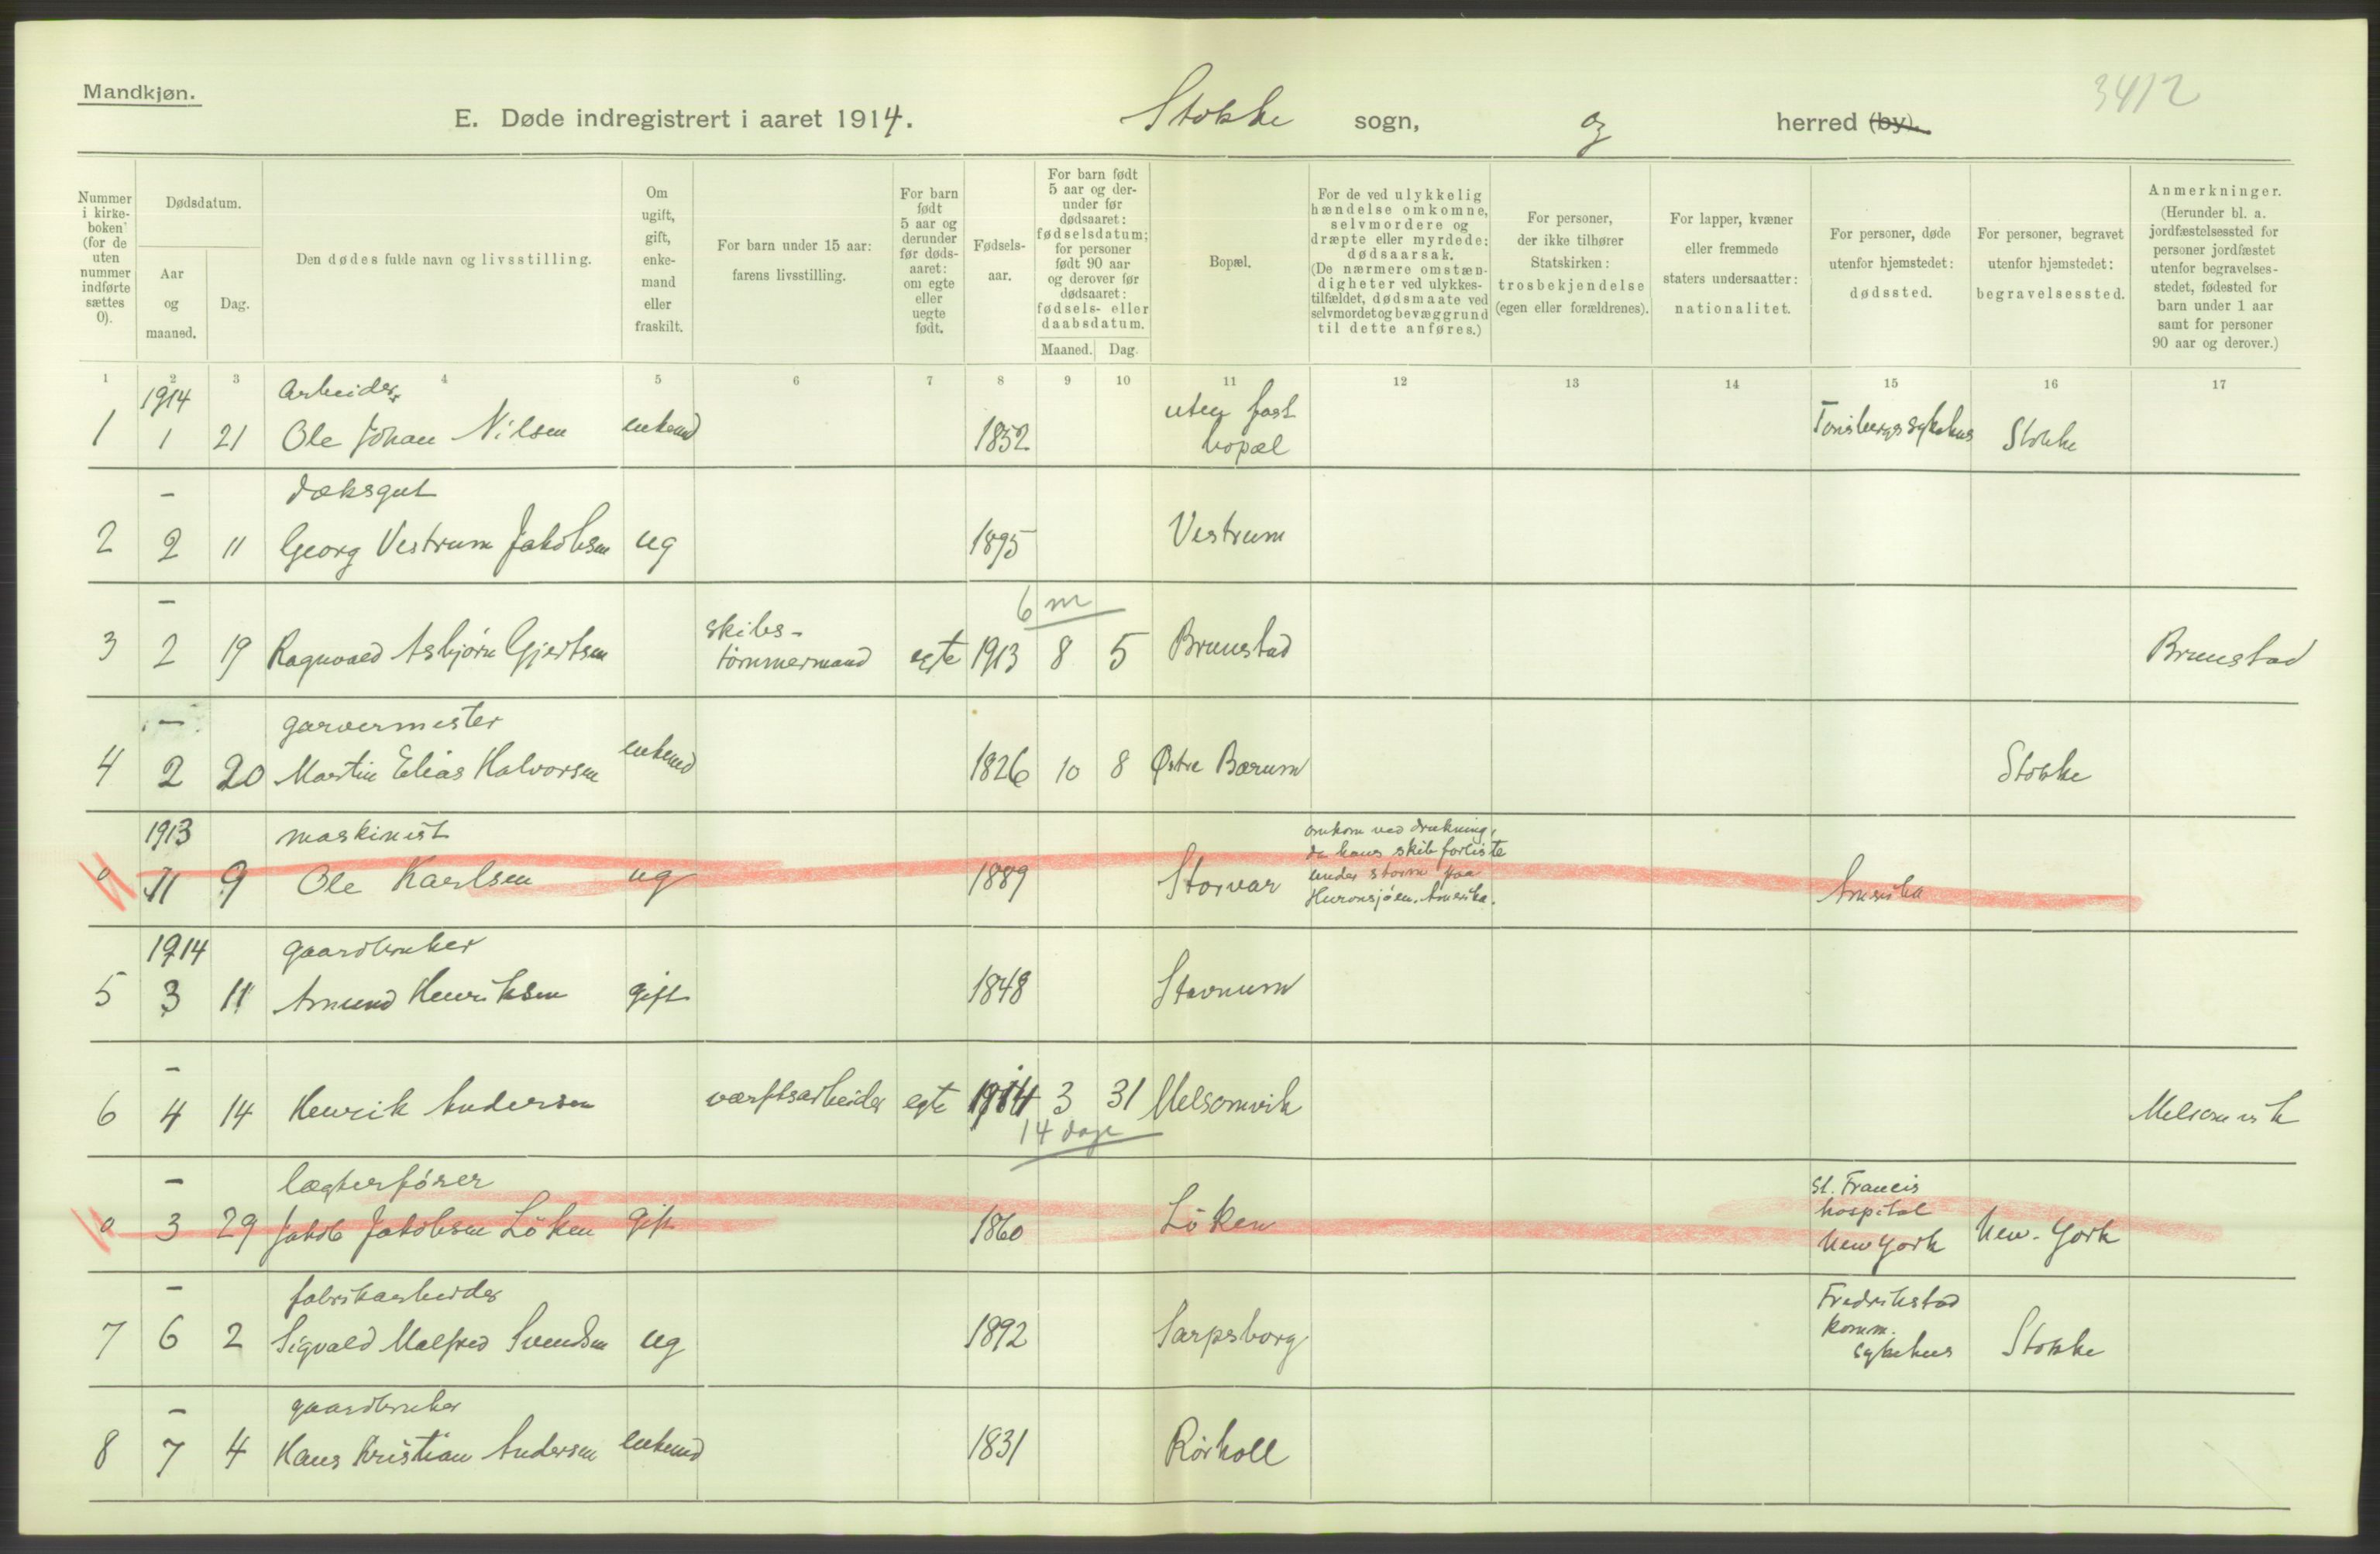 Mandkjøn.
3412
E. Døde indregistrert i aaret 1914. Stokke sogn, og herred (by).
Nummer i kirke- boken (for de uten nummer indførte sættes 0).
Dødsdatum.
Aar og maaned.
Dag.
Den dødes fulde navn og livsstilling.
Om ugift, gift, enke- mand eller fraskilt.
For barn under 15 aar: farens livsstilling.
For barn født 5 aar og derunder før døds- aaret: om egte eller uegte født.
Fødsels- aar.
For barn født 5 aar og der- under før dødsaaret: fødselsdatum; for personer født 90 aar og derover før dødsaaret: fødsels- eller daabsdatum.
Maaned. Dag.
Bopæl.
For de ved ulykkelig hændelse omkomne, selvmordere og dræpte eller myrdede: dødsaarsak. (De nærmere omstæn- digheter ved ulykkes- tilfældet, dødsmaate ved selvmordet og bevæggrund til dette anføres.)
For personer, der ikke tilhører Statskirken: trosbekjendelse (egen eller forældrenes).
For lapper, kvæner eller fremmede staters undersaatter: nationalitet.
For personer, døde utenfor hjemstedet: dødssted.
For personer, begravet utenfor hjemstedet: begravelsessted.
Anmerkninger. (Herunder bl. a. jordfæstelsessted for personer jordfæstet utenfor begravelses- stedet, fødested for barn under 1 aar samt for personer 90 aar og derover.)
1 2 3 4 5 6 7 8 9 10 11 12 13 14 15 16 17
1914 Arbeider uten fast
1 1 21 Ole Johan Nilsen enkemd 1852 bopæl Tønsbergs sykehus Stokke
– dæksgut
2 2 11 Georg Vestrum Jakobsen ug 1895 Vestrum
– skibs- 6 m
3 2 19 Ragnvald Asbjørn Gjertsen tømmermand egte 1913 8 5 Brunstad Brunstad
– garvermester
4 2 20 Martin Elias Halvorsen enkemd 1826 10 8 Østre Bærum Stokke
1913 maskinist
0 11 9 Ole Karlsen ug 1889 Storvar
omkom ved drukning,
da hans skib forliste
under storm paa
Huronsjøen. Amerika.
Amerika
1914 gaardbruker
5 3 11 Amund Henriksen gift 1848 Stavnum
–
6 4 14 Henrik Andersen værftsarbeider egte 1914 3 31 Melsomvik Melsomvik
14 dage
– lægterfører St. Francis
hospital
0 3 29 Jakob Jakobsen Løken gift 1860 Løken New York New-York
– fabrikarbeider Fredrikstad
komm.
7 6 2 Sigvald Malfred Svendsen ug 1892 Sarpsborg sykehus Stokke
– gaardbruker
8 7 4 Hans Kristian Andersen enkemd 1831 Rørkoll